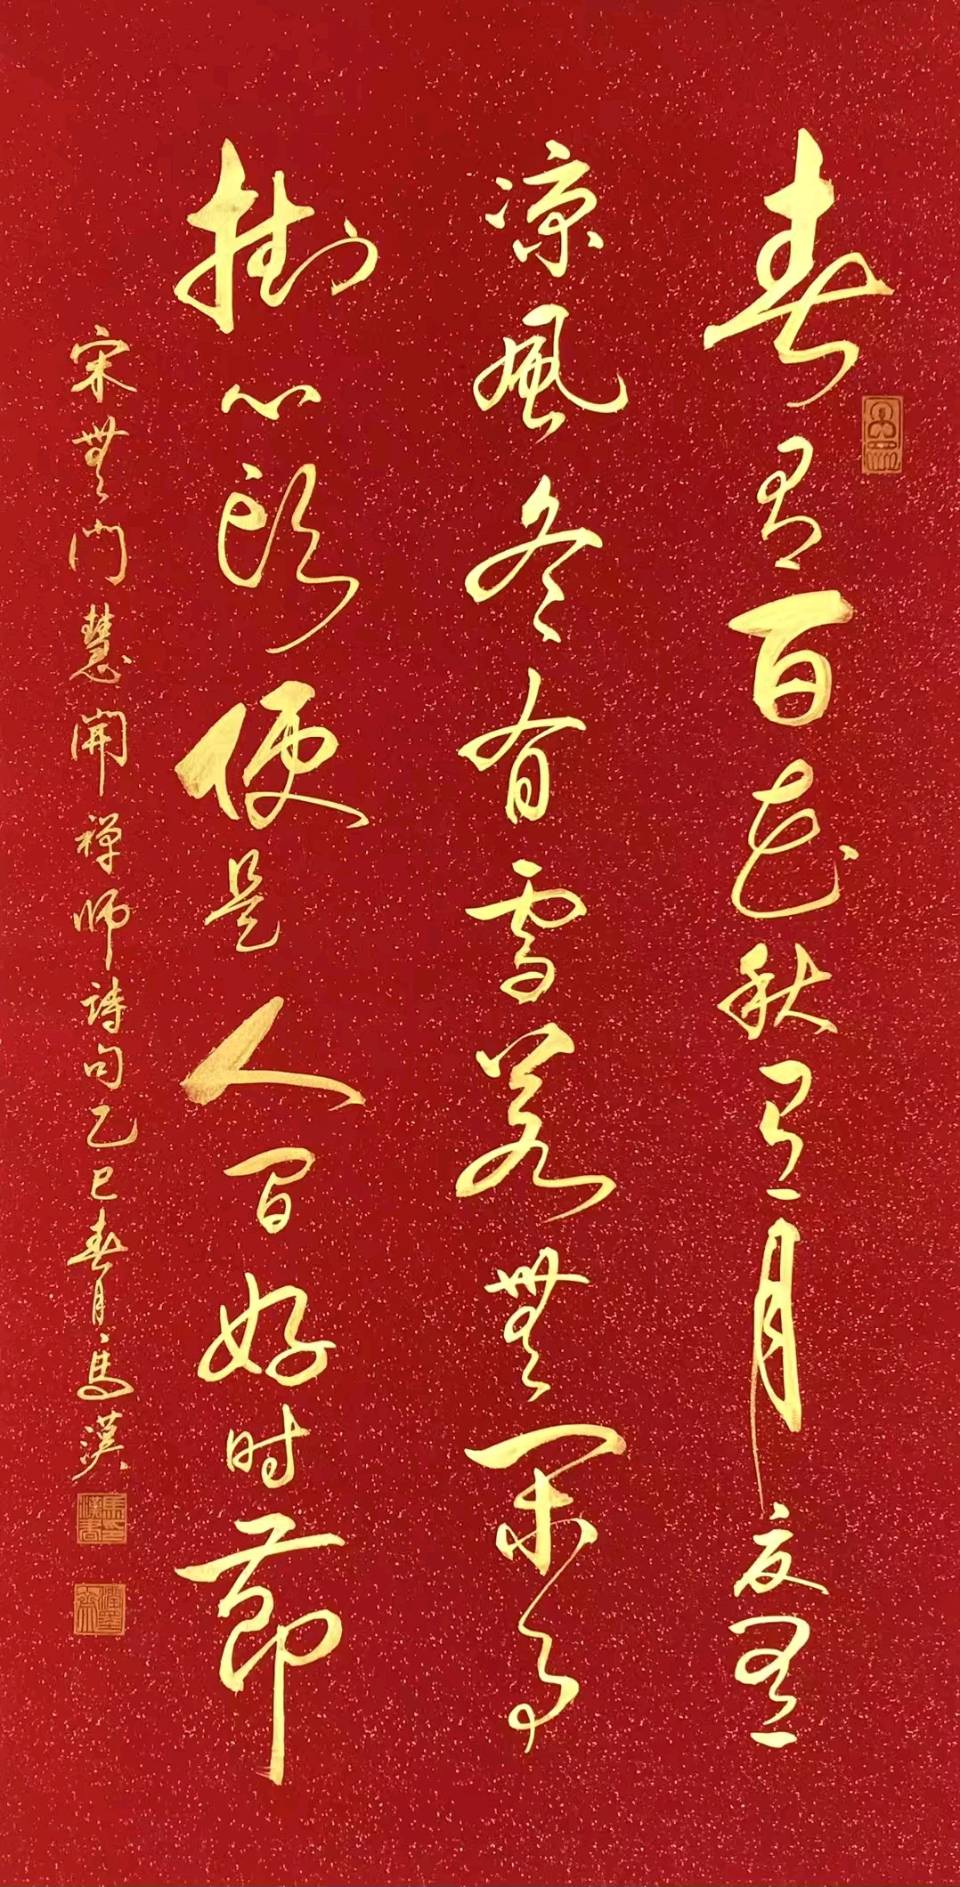 春有百花秋有月夏有
凉風冬有雪若無閑事
掛心頭便是人間好时節
宋無門慧開禅师詩句乙巳春月馬漢